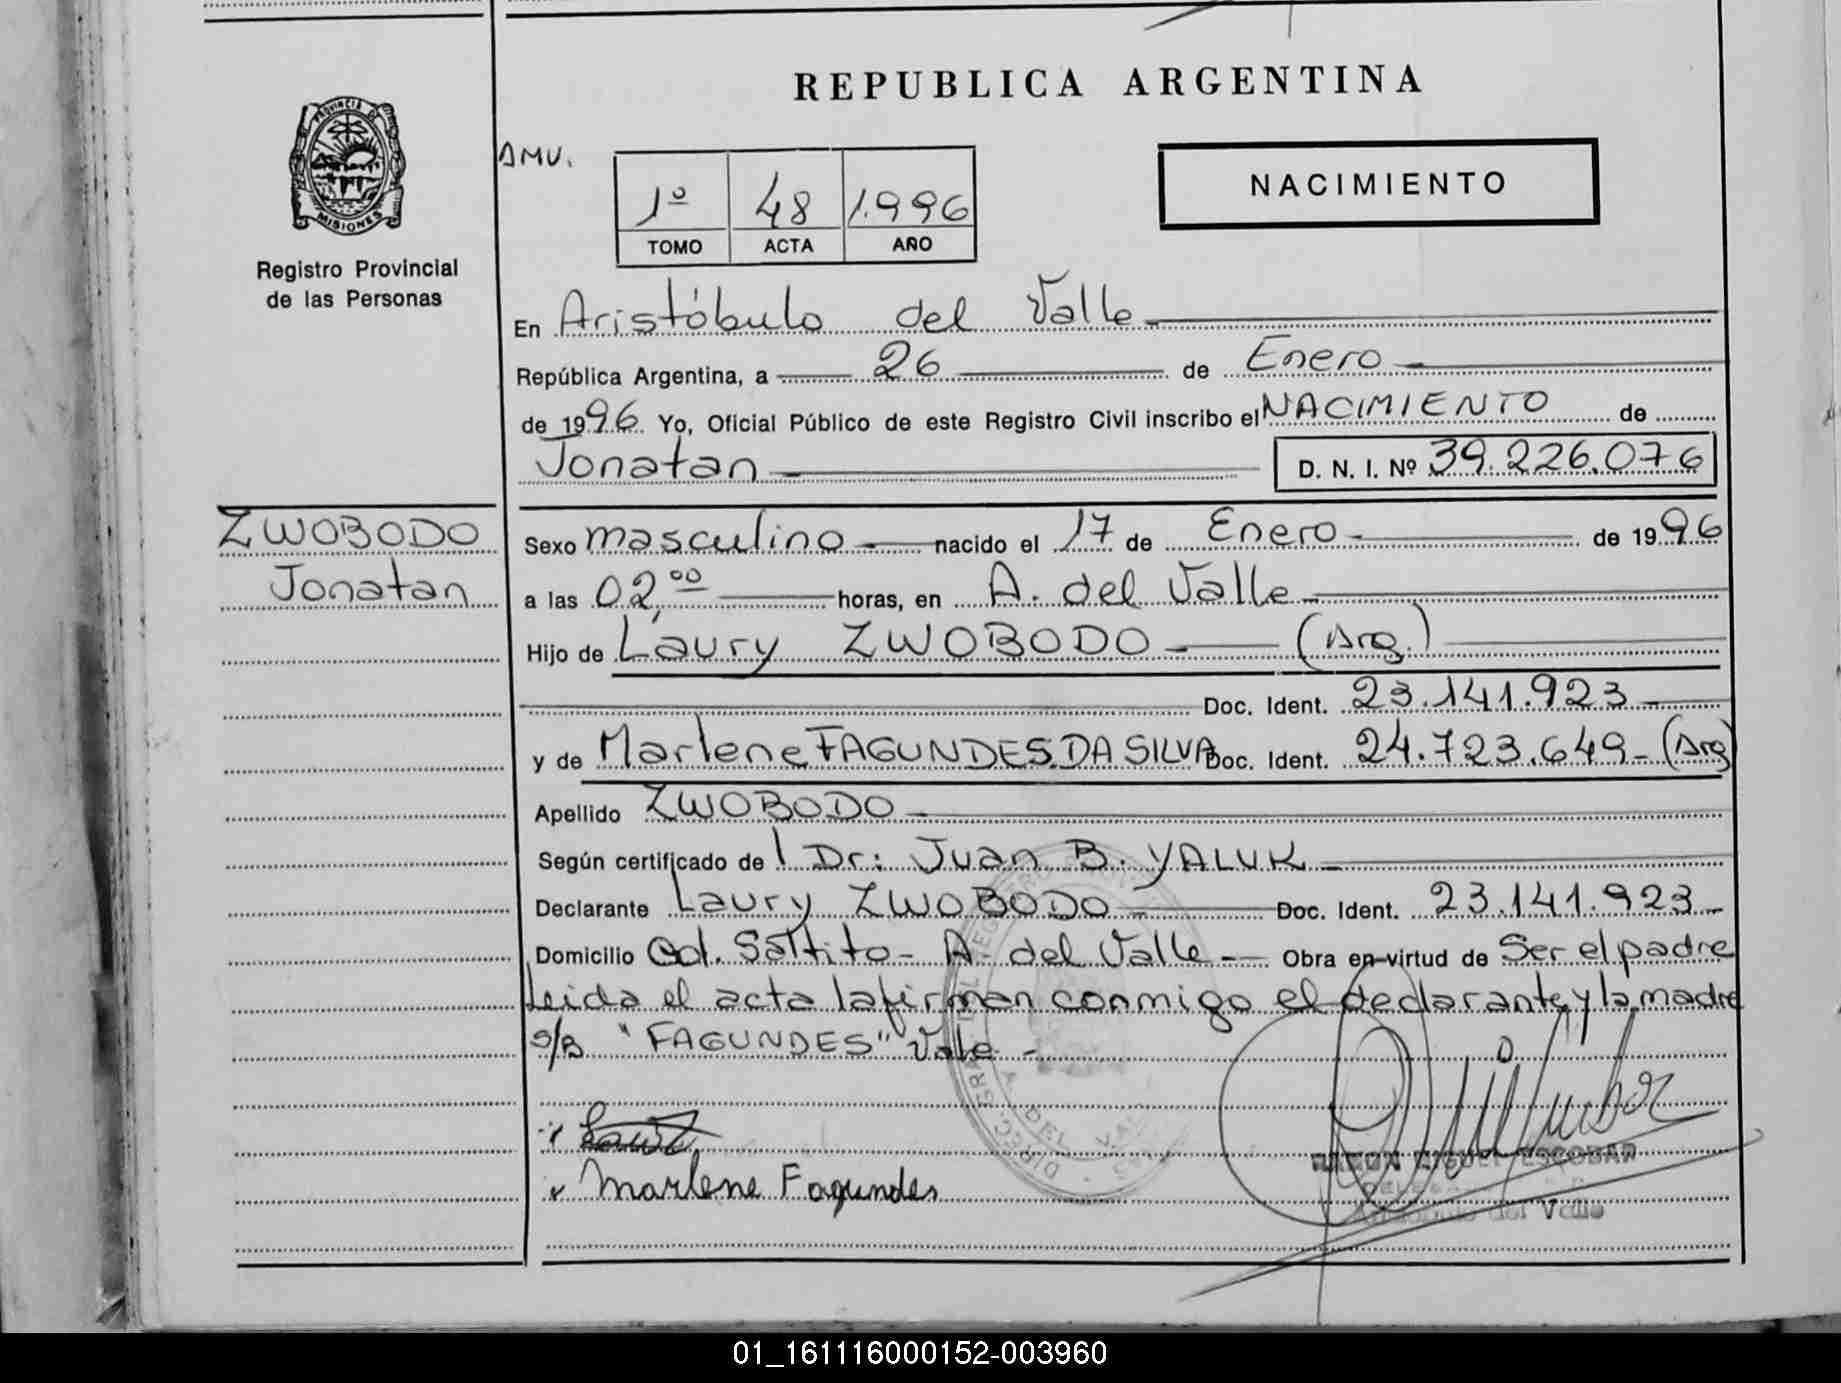 REPUBLICA ARGENTINA
PROVINCIA DE
MISIONES
Registro Provincial
de las Personas
AMV.
1º 48 1.996
TOMO ACTA AÑO
NACIMIENTO
En Aristóbulo del Valle
República Argentina, a 26 de Enero
de 1996 Yo, Oficial Público de este Registro Civil inscribo el NACIMIENTO de
Jonatan D. N. I. Nº 39.226.076
ZWOBODO
Jonatan
Sexo masculino nacido el 17 de Enero de 1996
a las 02,00 horas, en A. del Valle
Hijo de Laury ZWOBODO (Arg.)
Doc. Ident. 23.141.923
y de Marlene FAGUNDES DA SILVA Doc. Ident. 24.723.649 (Arg)
Apellido ZWOBODO
Según certificado de Dr: Juan B. YALUK
Declarante Laury ZWOBODO Doc. Ident. 23.141.923
Domicilio Col. Saltito - A. del Valle Obra en virtud de Ser el padre
Leida el acta la firman conmigo el declarante y la madre
s/B "FAGUNDES" Vale
Marlene Fagundes
RAMON MIGUEL ESCOBAR
Aristobulo del Valle
01_161116000152-003960